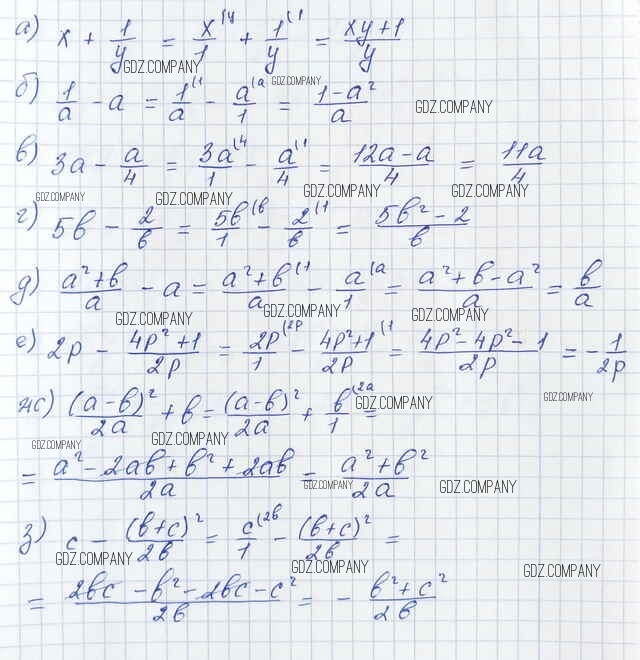 а) x + 1/y = x⁽ʸ/1 + 1⁽¹/y = (xy+1)/y
GDZ.COMPANY
GDZ.COMPANY
б) 1/a - a = 1⁽¹/a - a⁽ᵃ/1 = (1-a²)/a
GDZ.COMPANY
в) 3a - a/4 = 3a⁽⁴/1 - a⁽¹/4 = (12a-a)/4 = 11a/4
GDZ.COMPANY GDZ.COMPANY GDZ.COMPANY GDZ.COMPANY
г) 5b - 2/b = 5b⁽ᵇ/1 - 2⁽¹/b = (5b²-2)/b
д) (a²+b)/a - a = (a²+b)⁽¹/a - a⁽ᵃ/1 = (a²+b-a²)/a = b/a
GDZ.COMPANY GDZ.COMPANY GDZ.COMPANY
е) 2p - (4p²+1)/2p = 2p⁽²ᵖ/1 - (4p²+1)⁽¹/2p = (4p²-4p²-1)/2p = -1/2p
ж) (a-b)²/2a + b = (a-b)²/2a + b⁽²ᵃ/1 =
GDZ.COMPANY GDZ.COMPANY
GDZ.COMPANY GDZ.COMPANY
= (a²-2ab+b²+2ab)/2a = (a²+b²)/2a
GDZ.COMPANY GDZ.COMPANY
з) c - (b+c)²/2b = c⁽²ᵇ/1 - (b+c)²/2b =
GDZ.COMPANY GDZ.COMPANY GDZ.COMPANY
= (2bc-b²-2bc-c²)/2b = -(b²+c²)/2b